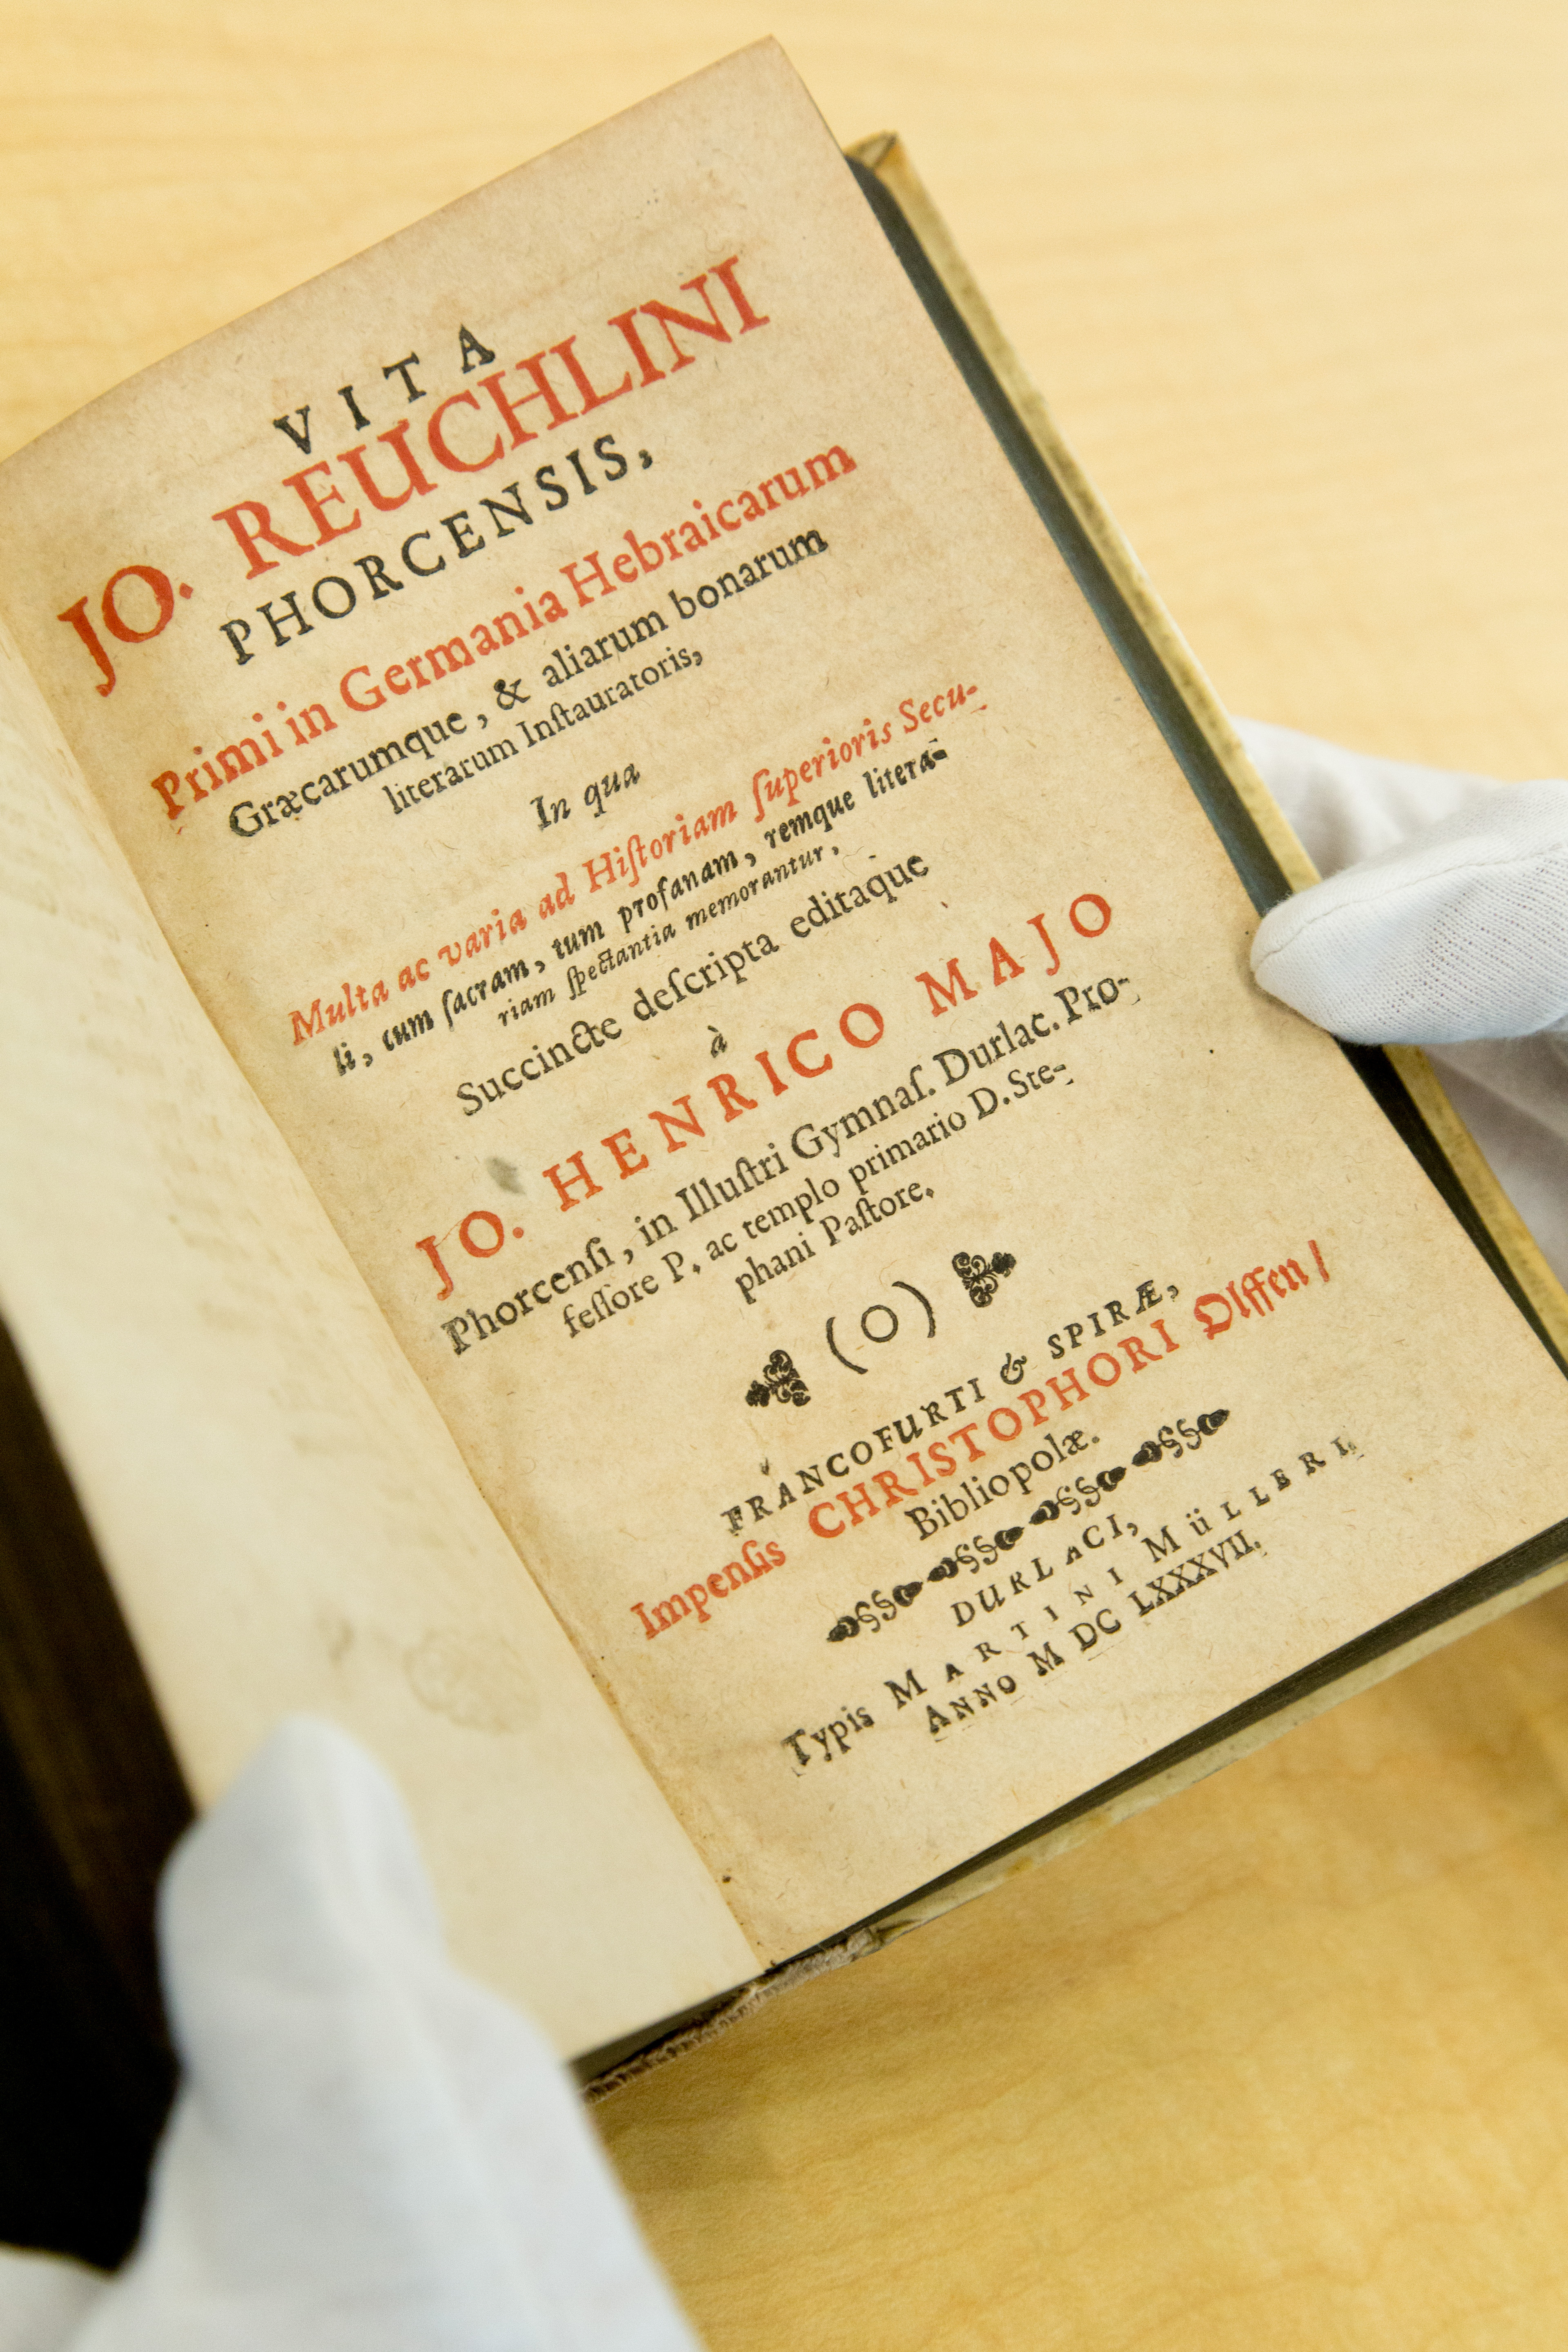 VITA
JO. REUCHLINI
PHORCENSIS,
Primi in Germania Hebraicarum
Græcarumque, & aliarum bonarum
literarum Inſtauratoris,
In qua
Multa ac varia ad Hiſtoriam ſuperioris Secu-
li, cum ſacram, tum profanam, remque litera-
riam ſpectantia memorantur,
Succincte deſcripta editaque
à
JO. HENRICO MAJO
Phorcenſi, in Illuſtri Gymnaſ. Durlac. Pro-
feſſore P. ac templo primario D. Ste-
phani Paſtore.
(O)
FRANCOFURTI & SPIRÆ,
Impenſis CHRISTOPHORI Olffen/
Bibliopolæ.
DURLACI,
Typis MARTINI MüLLERI,
ANNO M DC LXXXVII.